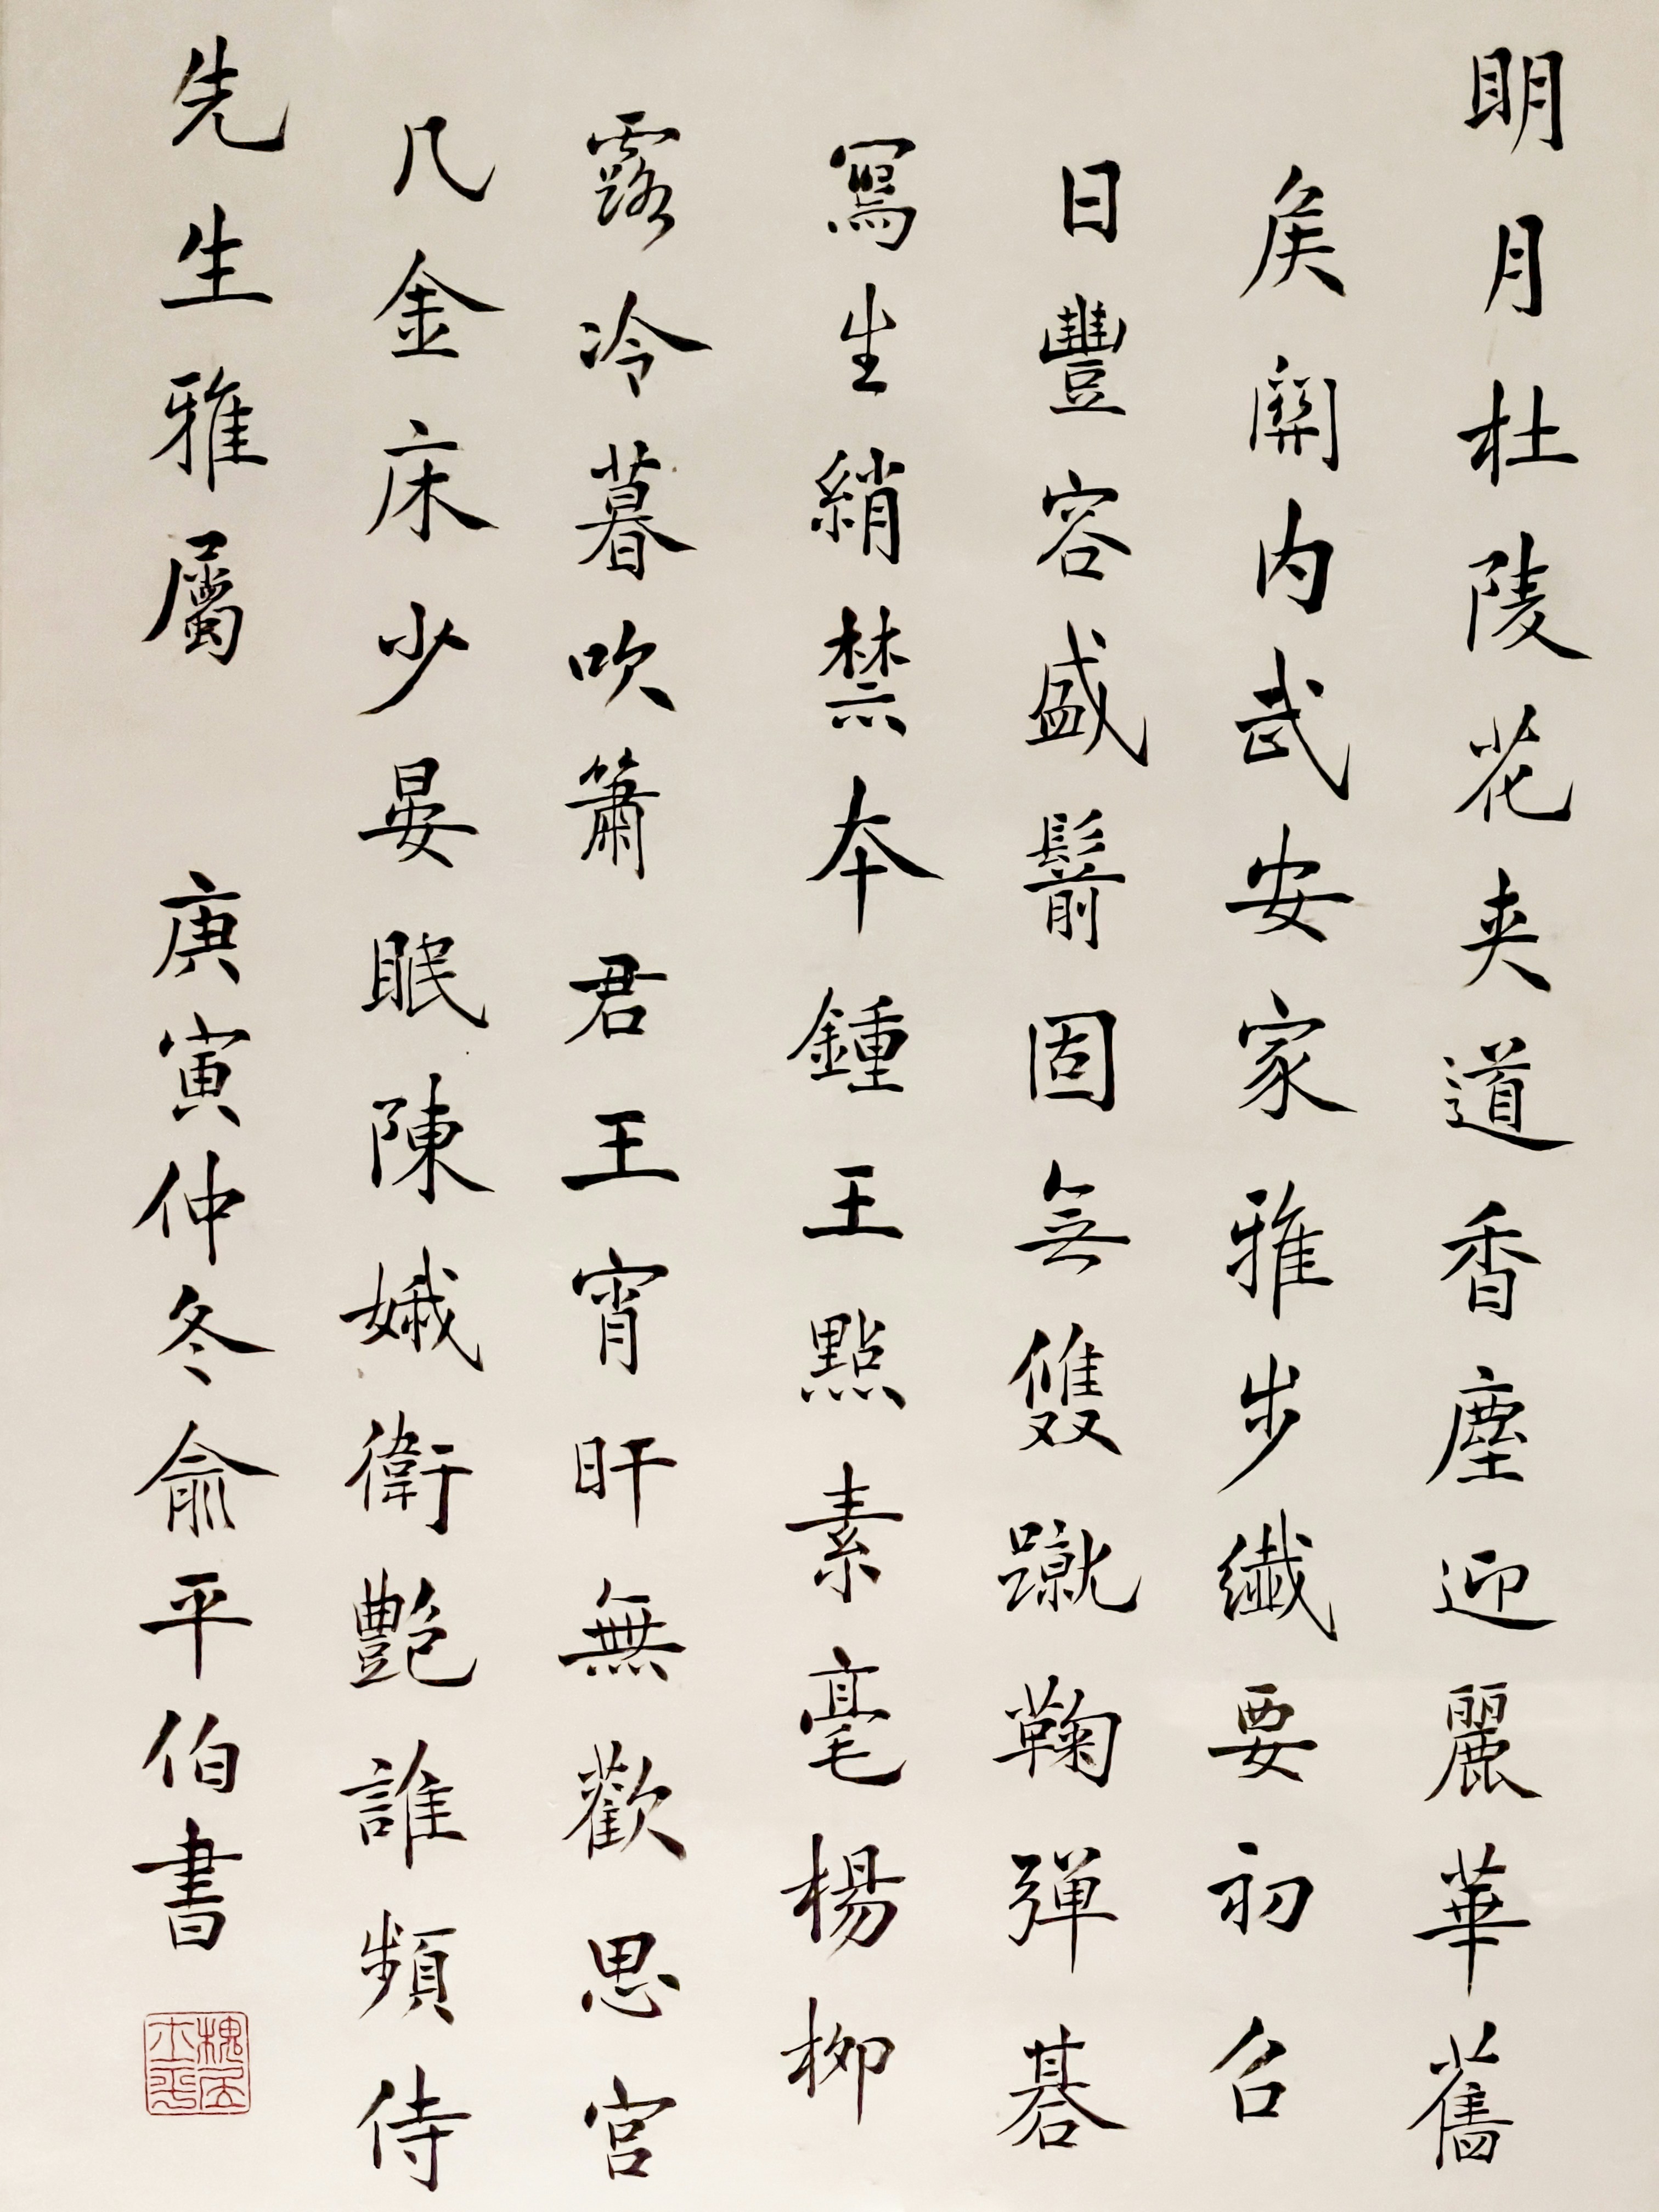 明月杜陵花夹道香塵迎麗華舊
矦關内武安家雅步纖要初召
日豐容盛鬋固無雙蹴鞠彈棊
寫生綃禁本鍾王點素毫楊柳
露冷暮吹簫君王宵旰無歡思宮
几金床少晏眠陳娥衛艶誰頻侍
先生雅屬 庚寅仲冬俞平伯書